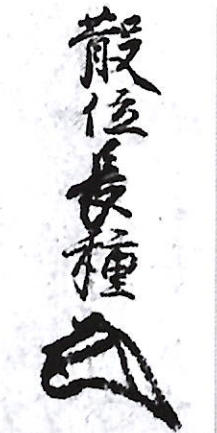 散位長種